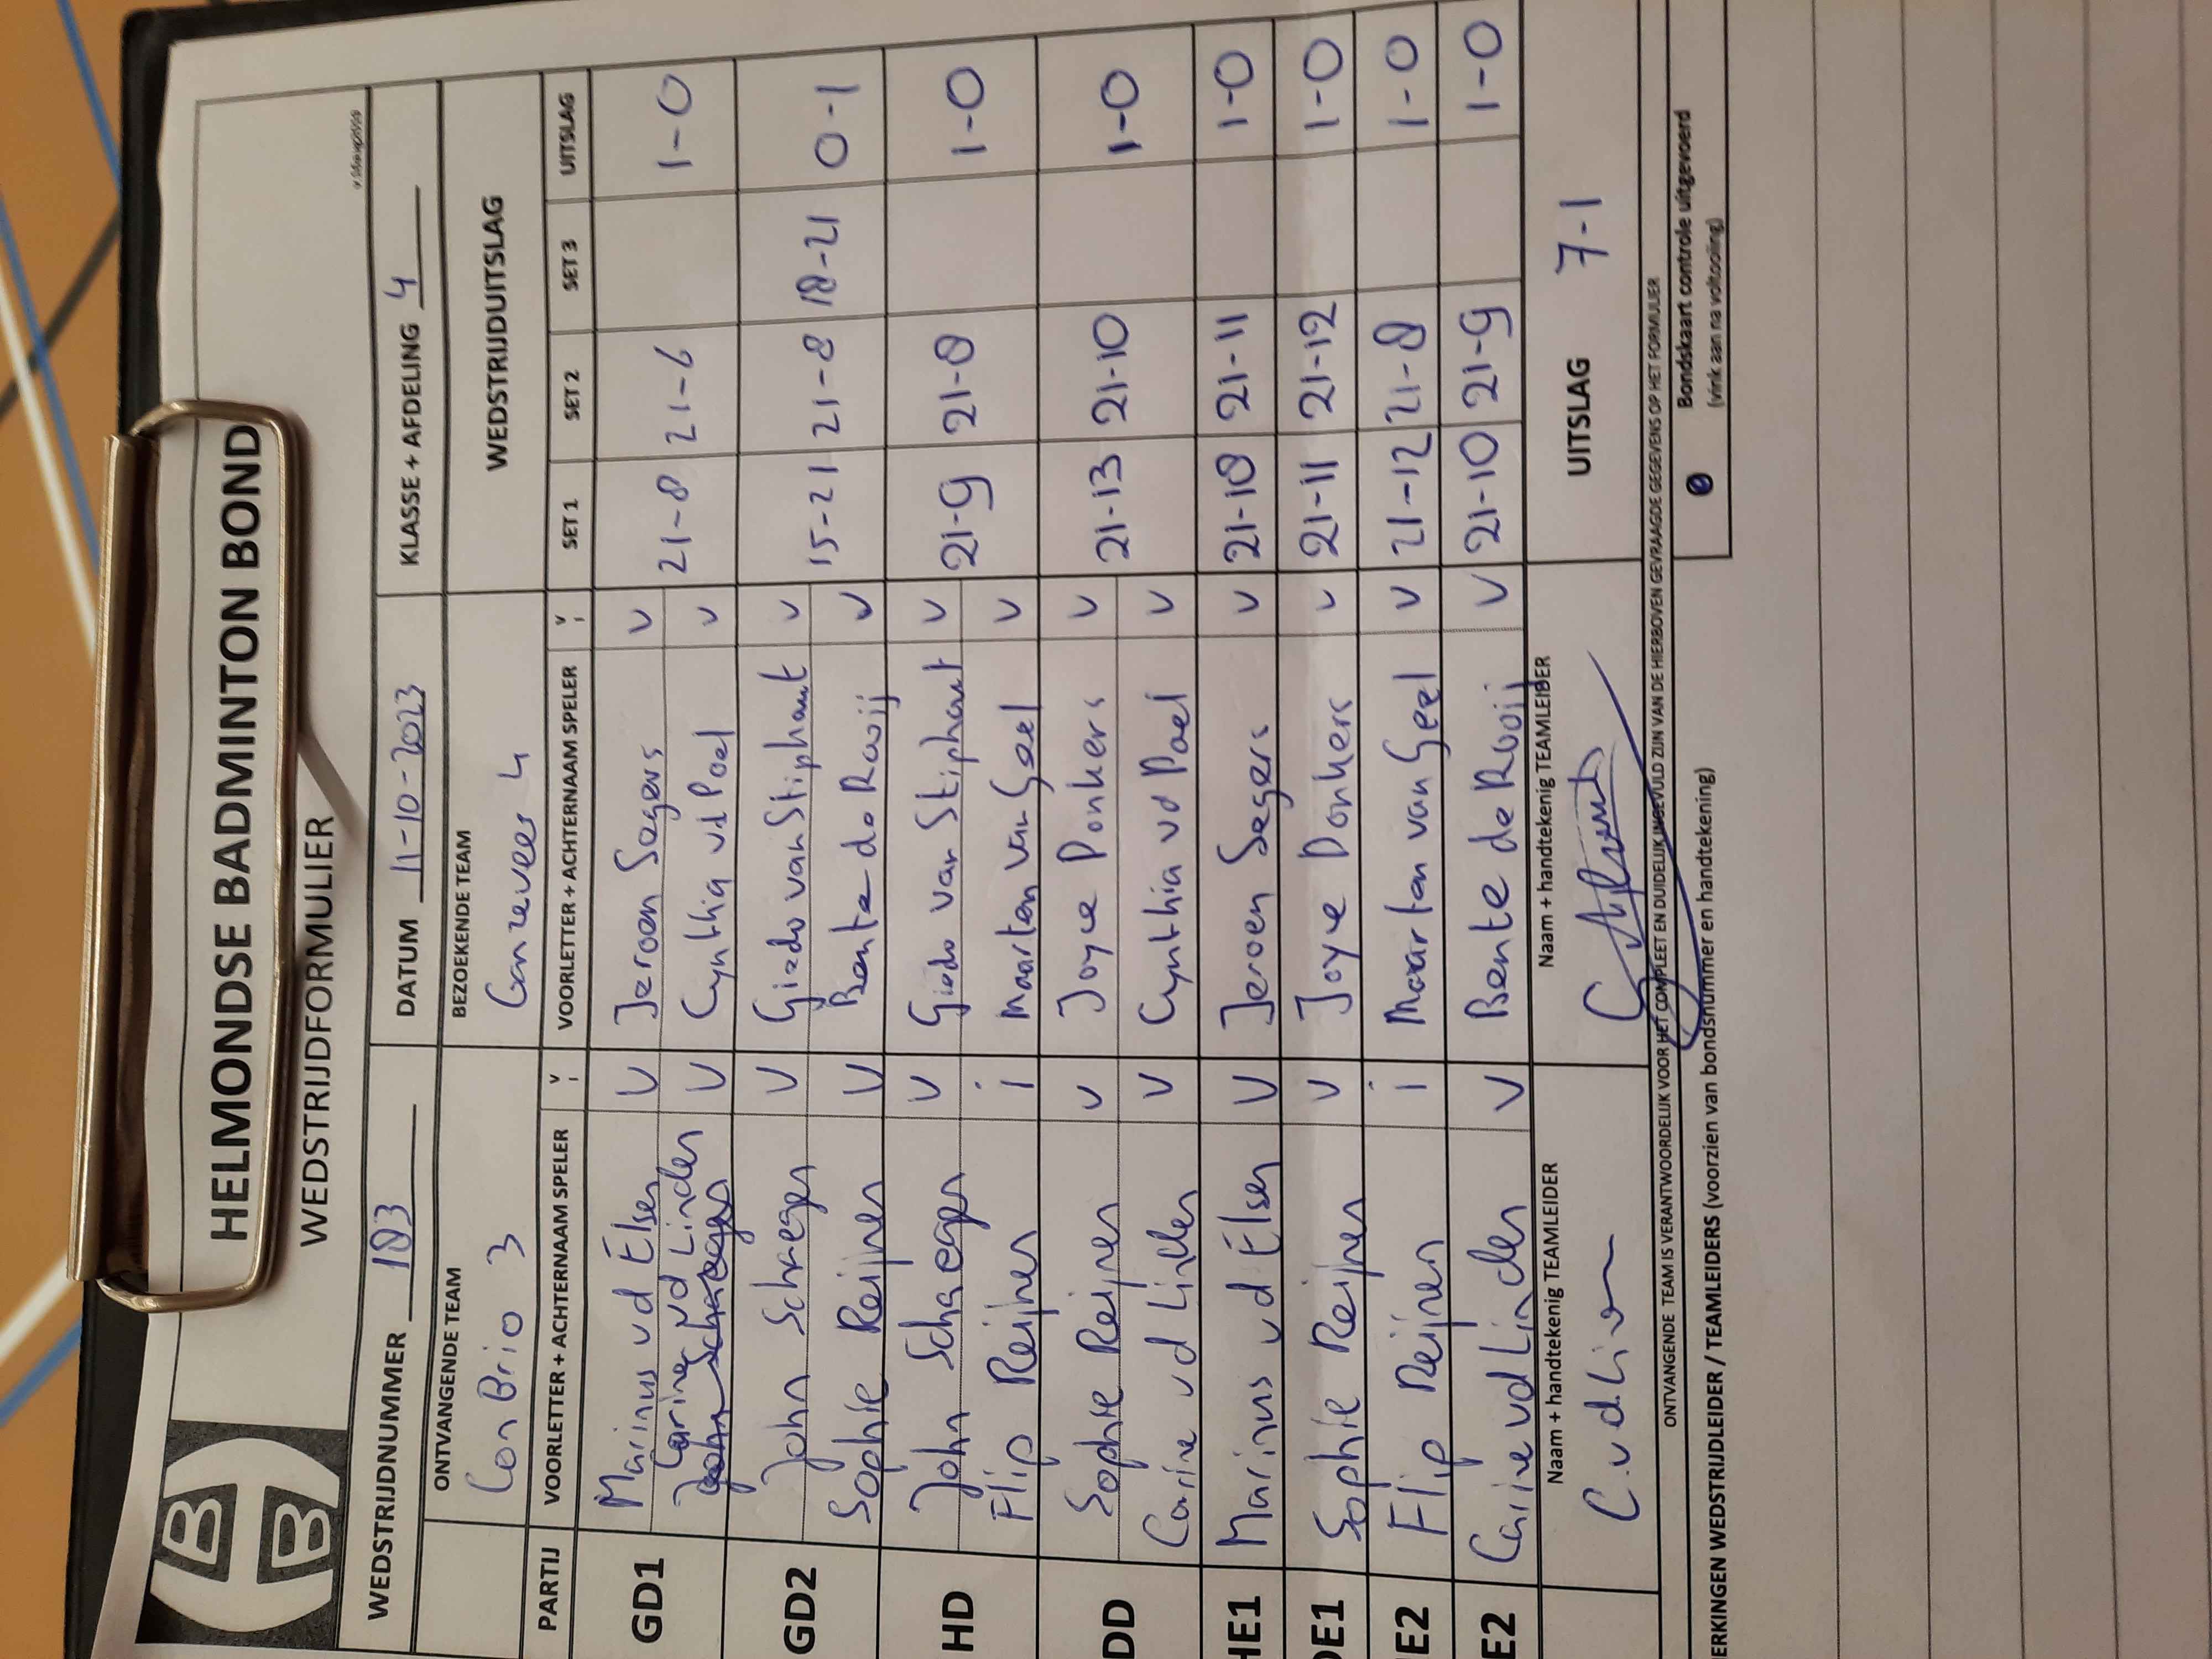 HELMONDSE BADMINTON BOND
WEDSTRIJDFORMULIER
WEDSTRIJDNUMMER 183 DATUM 11-10-2023 KLASSE + AFDELING 4
ONTVANGENDE TEAM BEZOEKENDE TEAM WEDSTRIJDUITSLAG
Con Brio 3 Ganzeveer 4
PARTIJ VOORLETTER + ACHTERNAAM SPELER V i VOORLETTER + ACHTERNAAM SPELER V i SET 1 SET 2 SET 3 UITSLAG
GD1 Marinus vd Elsen V Jeroen Segers V 21-8 21-6 1-0
Carine vd Linden V Cynthia vd Poel V
GD2 John Schaeger V Giedo van Stiphout V 15-21 21-8 18-21 0-1
Sophie Reijnen V Bente de Rooij V
HD John Schaeger V Giedo van Stiphout V 21-9 21-8 1-0
Flip Reijnen i Maarten van Geel V
DD Sophie Reijnen V Joyce Donkers V 21-13 21-10 1-0
Carine vd Linden V Cynthia vd Poel V
HE1 Marinus vd Elsen V Jeroen Segers V 21-18 21-11 1-0
DE1 Sophie Reijnen V Joyce Donkers V 21-11 21-12 1-0
E2 Flip Reijnen i Maarten van Geel V 21-12 21-8 1-0
E2 Carine vd Linden V Bente de Rooij V 21-10 21-9 1-0
Naam + handtekenig TEAMLEIDER Naam + handtekenig TEAMLEIDER UITSLAG 7-1
ONTVANGENDE TEAM IS VERANTWOORDELIJK VOOR HET COMPLEET EN DUIDELIJK INGEVULD ZIJN VAN DE HIERBOVEN GEVRAAGDE GEGEVENS OP HET FORMULIER
ERKINGEN WEDSTRIJDLEIDER / TEAMLEIDERS (voorzien van bondsnummer en handtekening)
Bondskaart controle uitgevoerd
(vink aan na voltooiing)